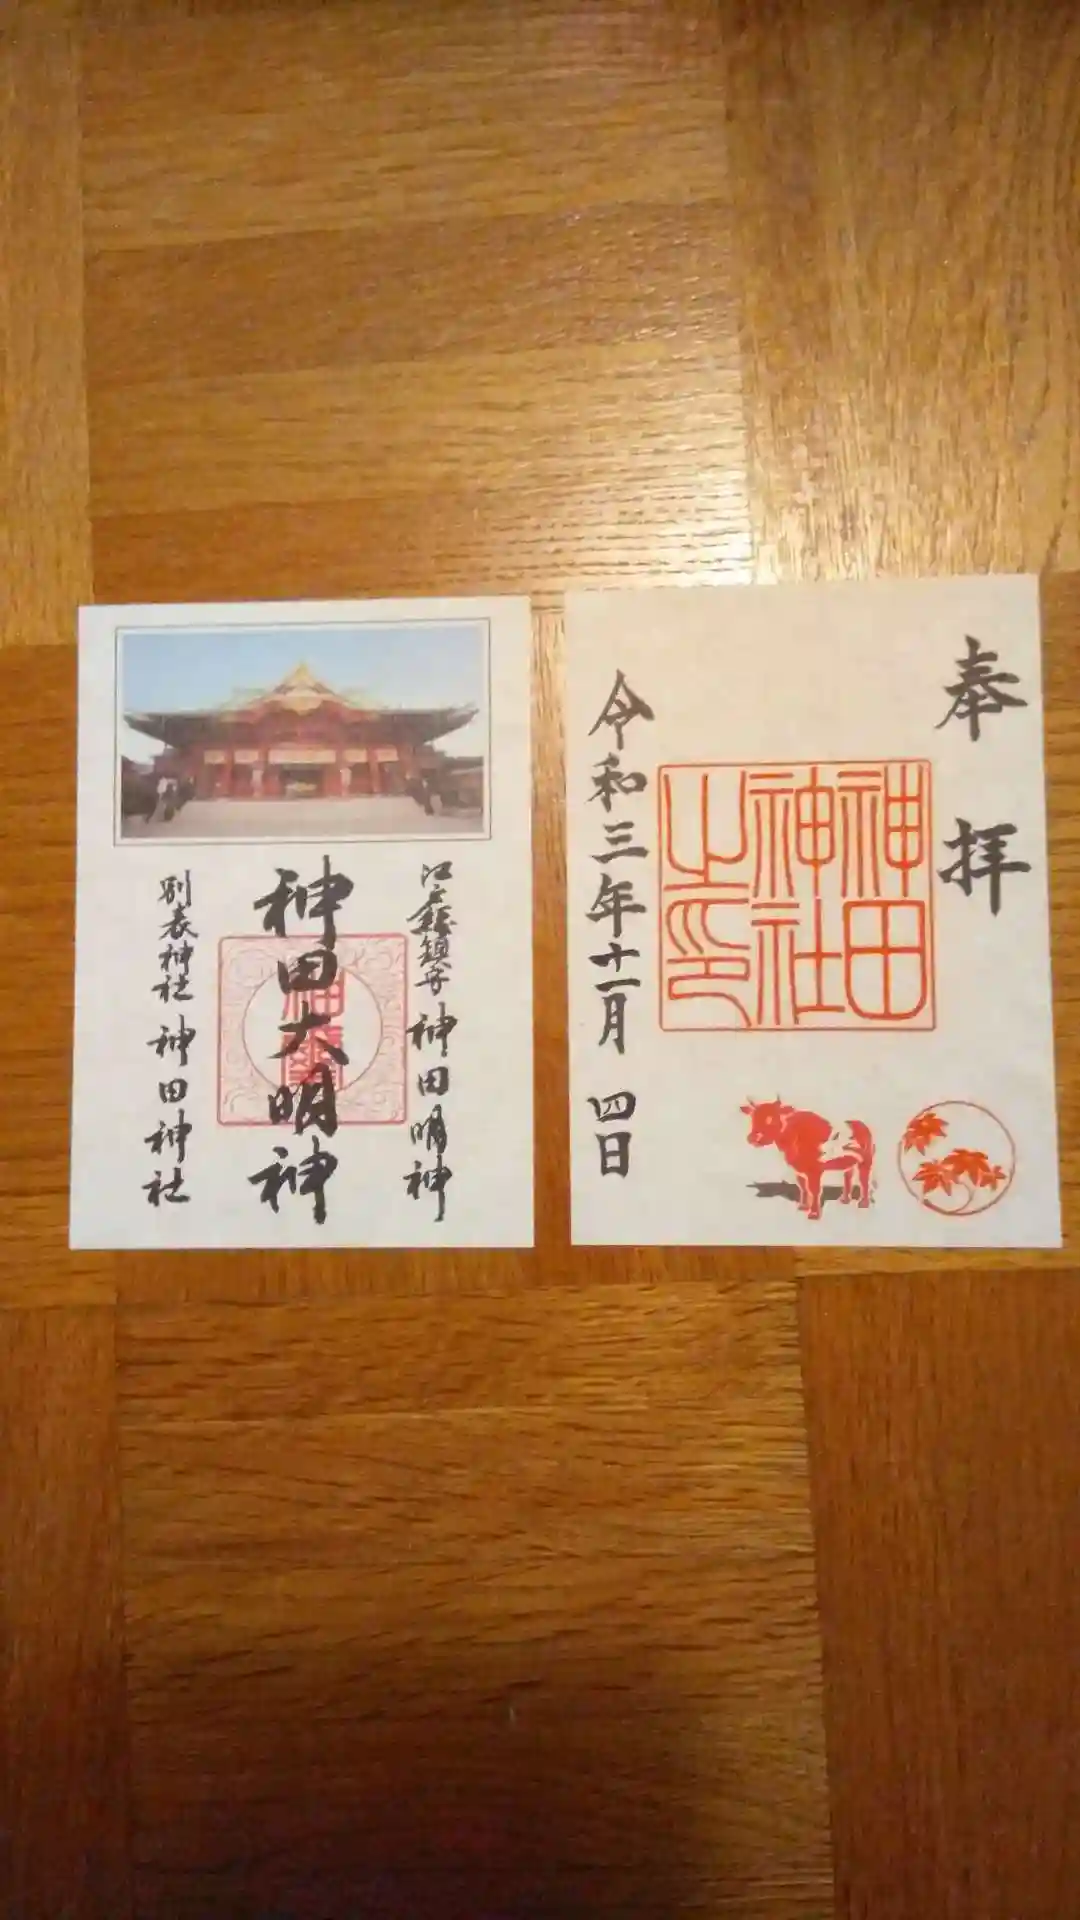 奉拝
神田
神社
之印
令和三年十一月 四日
江戸総鎮守 神田明神
神田大明神
別表神社 神田神社